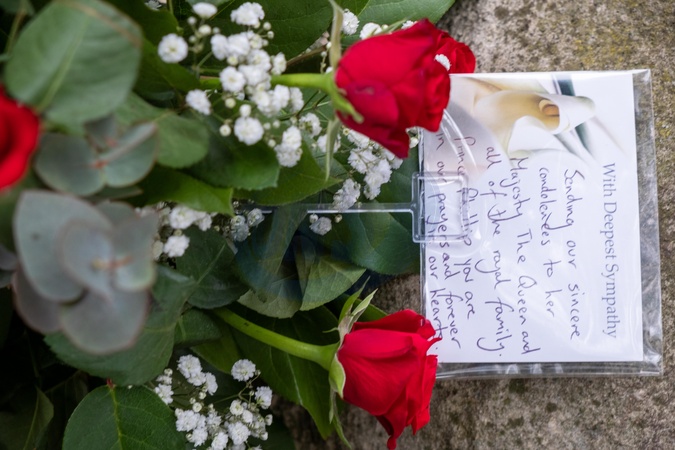 With Deepest Sympathy
Sending our sincere
condolences to her
Majesty The Queen and
all of the royal family.
Prince Philip you are
in our prayers and forever
our hearts.